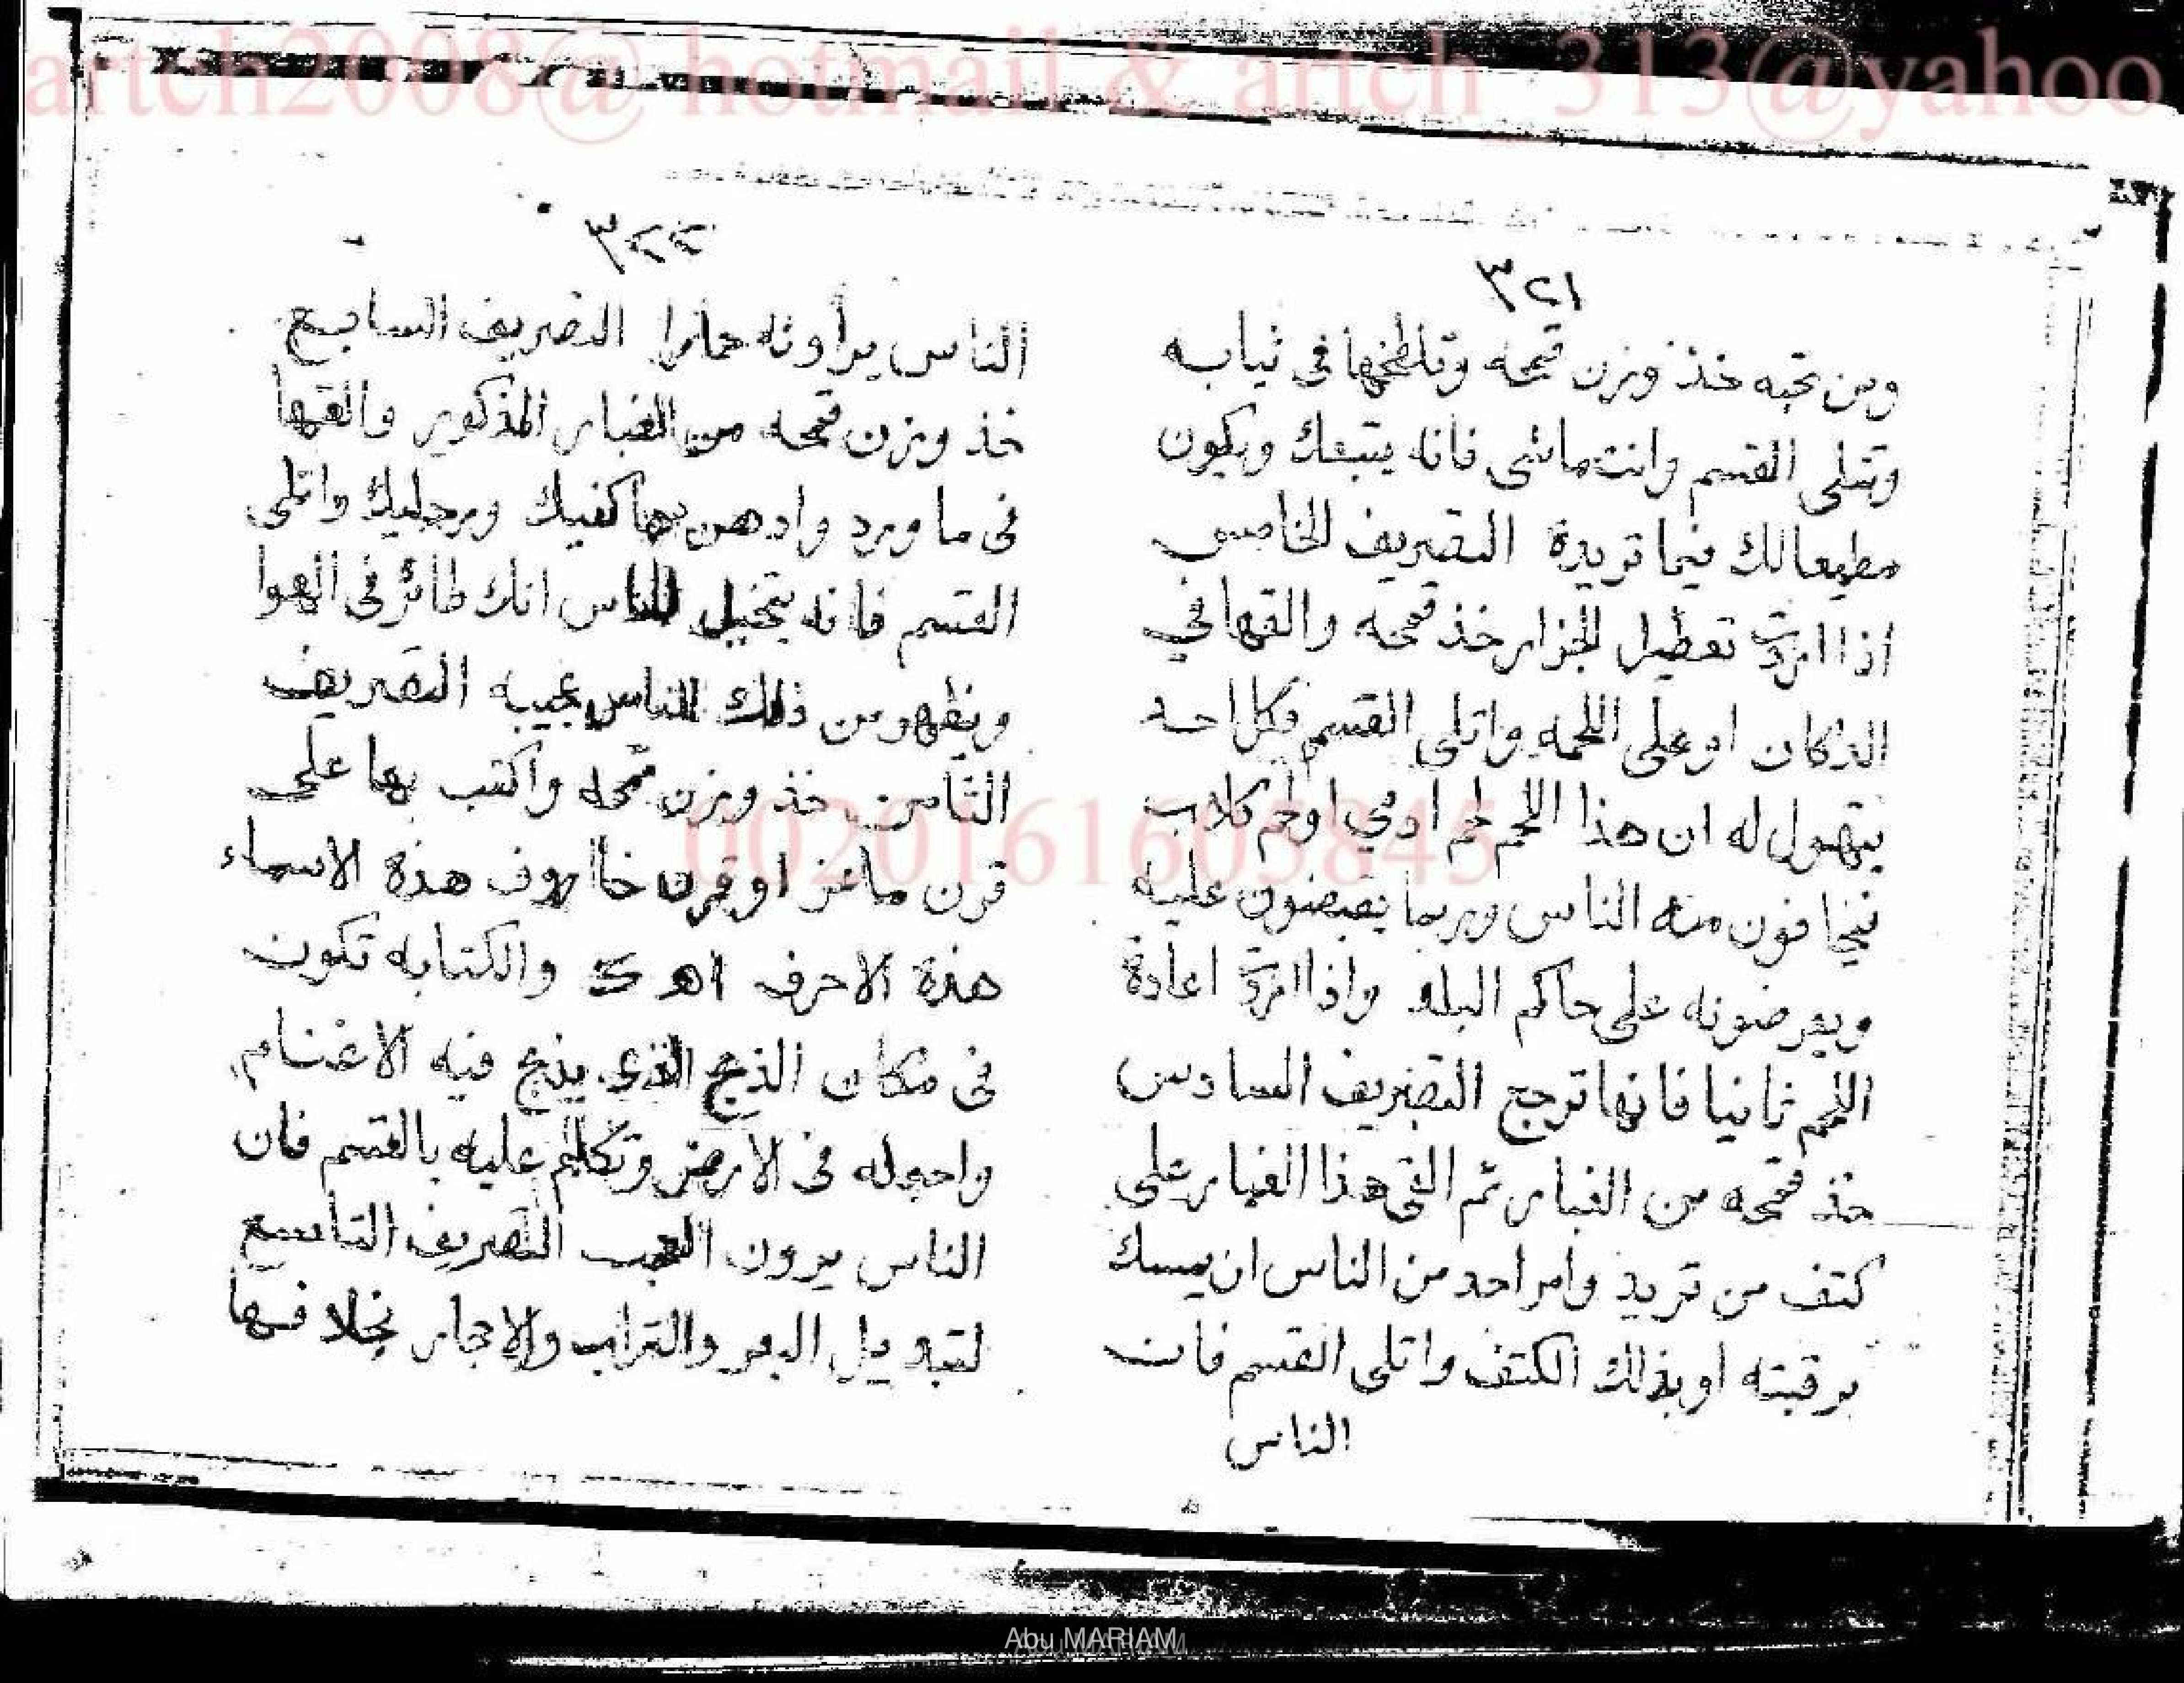 artch2008@ hotmail & artch_313@yahoo
٣٢١
ومن تحبه خذ وزن قمحه وتلطخها فى ثيابه
وتتلى القسم وانت ماشى فانه يتبعك ويكون
مطيعا لك فيما تريدة التصريف الخامس
اذا اردت تعطيل الجزار خذ قمحه والقها في
الدكان او على اللحمه واتلى القسم فكل احد
يقول له ان هذا اللحم لحم ادمي او لحم كلاب
فيخافون منه الناس وربما يقبضون عليه
ويعرضونه على حاكم البلد واذا اردت اعادة
اللحم ثانيا فانها ترجع التصريف السادس
خذ قمحه من الغبار ثم القى هذا الغبار على
كتف من تريد وامر احد من الناس ان يمسك
برقبته او بذلك الكتف واتلى القسم فان
الناس
٣٢٢
الناس يرأونه حمارا التصريف السابع
خذ وزن قمحه من الغبار المذكور والقها
فى ما ورد وادهن بها كفيك ورجليك واتلى
القسم فانه يتخيل للناس انك طائر فى الهوا
ويظهر من ذلك للناس عجيبه التصريف
الثامن خذ وزن قمحه واكتب بها على
قرن ماعز او قرن خاروف هذة الاسماء
هذة الاحرف والكتابه تكون
فى مكان الذبح الذى يذبح فيه الاغنام
واجعله فى الارض وتكلم عليه بالقسم فان
الناس يرون العجب التصريف التاسع
لتبديل البعر والتراب والاحجار بخلافها
0020161605845
Abu MARIAM